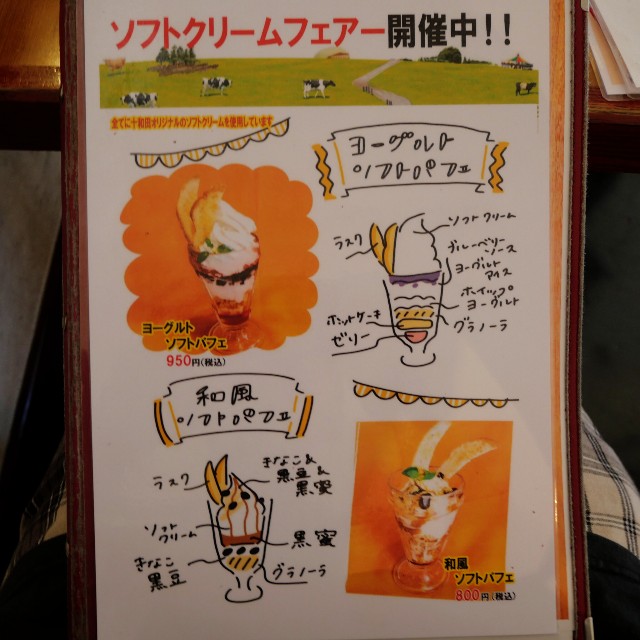 ソフトクリームフェアー開催中!!
全てに十和田オリジナルのソフトクリームを使用しています
ヨーグルト
ソフトパフェ
ラスク
ソフトクリーム
ブルーベリー
ソース
ヨーグルト
アイス
ホイップ
ヨーグルト
ホットケーキ
グラノーラ
ゼリー
ヨーグルト
ソフトパフェ
950円(税込)
和風
ソフトパフェ
ラスク
きなこ&
黒豆&
黒蜜
ソフト
クリーム
黒蜜
きなこ
黒豆
グラノーラ
和風
ソフトパフェ
800円(税込)